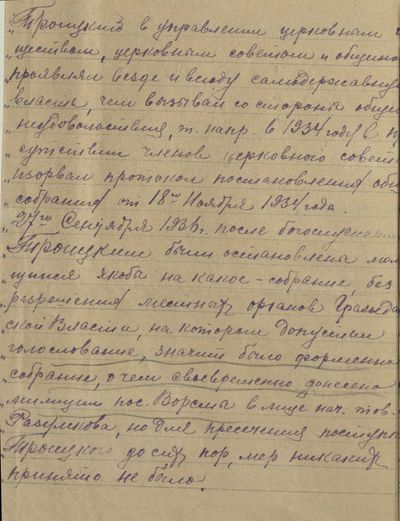 „Троицкий в управлении церковным и
„ществом, церковным советом и общино
„проявлял везде и всюду самодержавную
„власть, чем вызывал со стороны общи
„неудовольствия, т. напр. в 1934 году в пр
„сутствии членов церковного совета
„изорвал протокол постановления общ
„собрания от 18го Ноября 1934 года.
„27го Сентября 1936 г. после богослужения
„Троицким были остановлены мол
„щиеся якобы на какое-собрание, без
„разрешения местных органов Гражда
„ской Власти, на котором допустил
„голосование, значит было форменное
„собрание, о чем своевременно донесено
„милиции пос. Ворсмы в лице нач. тов.
„Разумкова, но для пресечения поступко
„Троицкого до сих пор, мер никаких
„принято не было.